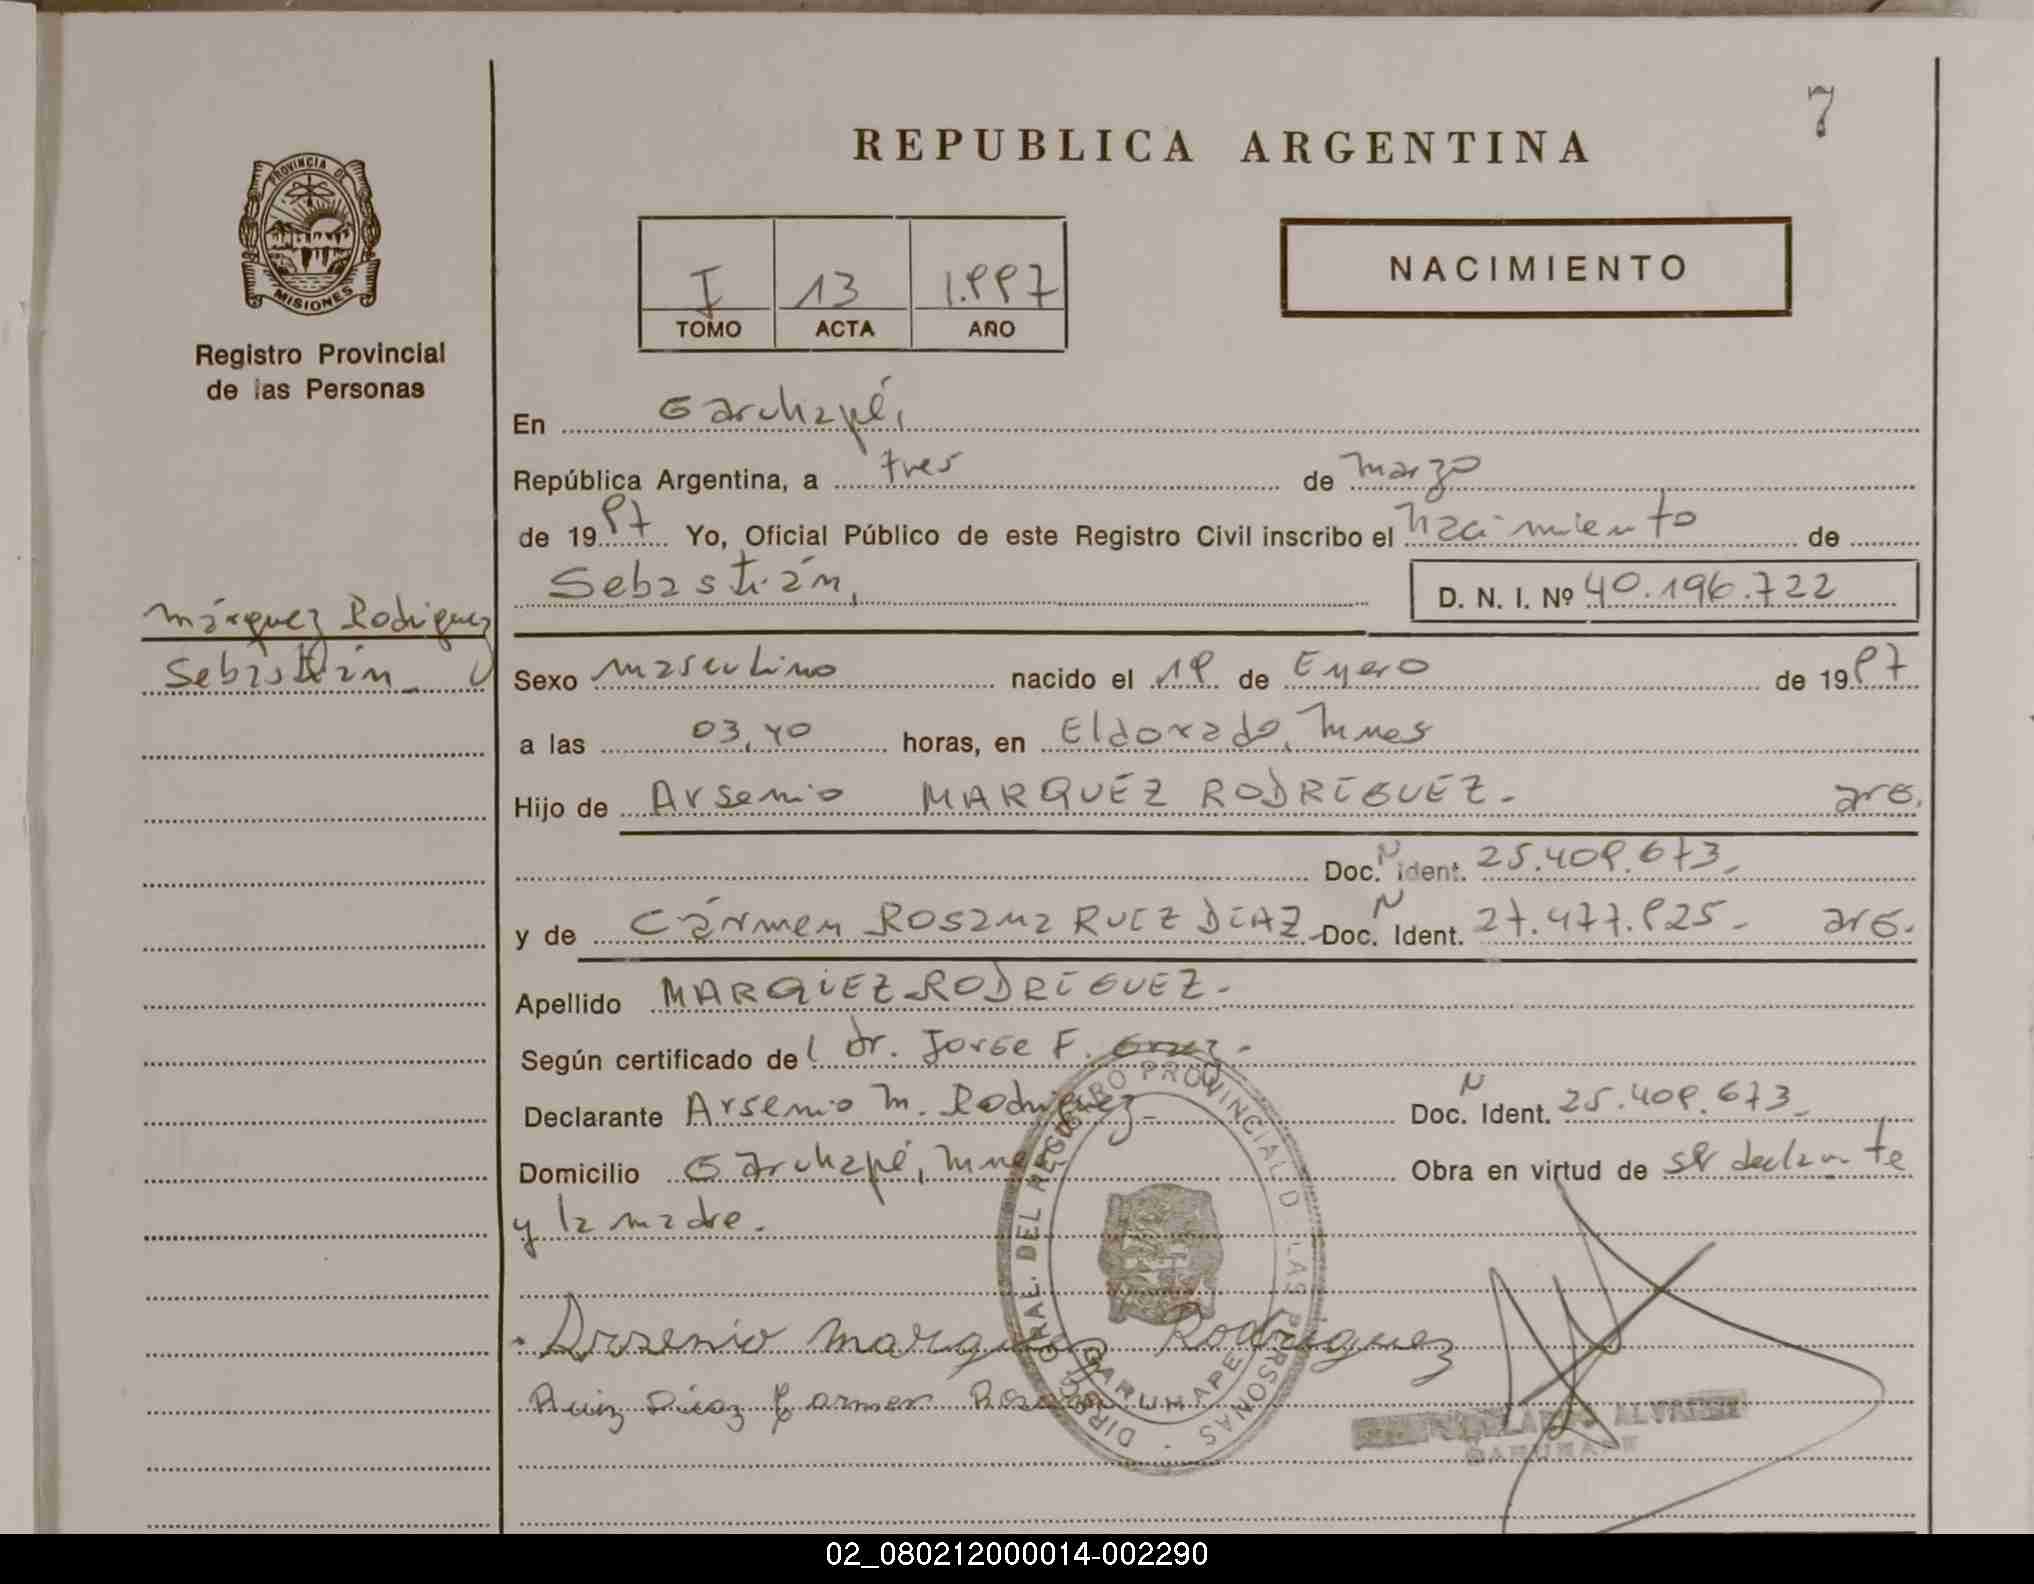 7
REPUBLICA ARGENTINA
PROVINCIA DE
MISIONES
Registro Provincial
de las Personas
I 13 1.997
TOMO ACTA AÑO
NACIMIENTO
En Garuhapé,
República Argentina, a tres de marzo
de 1997 Yo, Oficial Público de este Registro Civil inscribo el nacimiento de
Sebastián, D. N. I. Nº 40.196.722
Márquez Rodriguez
Sebastián
Sexo masculino nacido el 19 de Enero de 1997
a las 03,40 horas, en Eldorado, Mnes
Hijo de Arsenio MARQUÉZ RODRÍGUEZ. arg.
Doc. N Ident. 25.409.673
y de Cármen Rosana RUIZ DIAZ Doc. N Ident. 27.477.925 - arg.
Apellido MARQUEZ RODRÍGUEZ.
Según certificado del dr. Jorge F.
Declarante Arsenio M. Rodriguez Doc. N Ident. 25.409.673
Domicilio Garuhapé, Mnes Obra en virtud de ser declarante
y la madre.
Arsenio Marquez Rodriguez
Ruiz Diaz Carmen Rosana
DIRECC. GRAL. DEL REGISTRO PROVINCIAL DE LAS PERSONAS
GARUHAPE
GARUHAPE
02_080212000014-002290